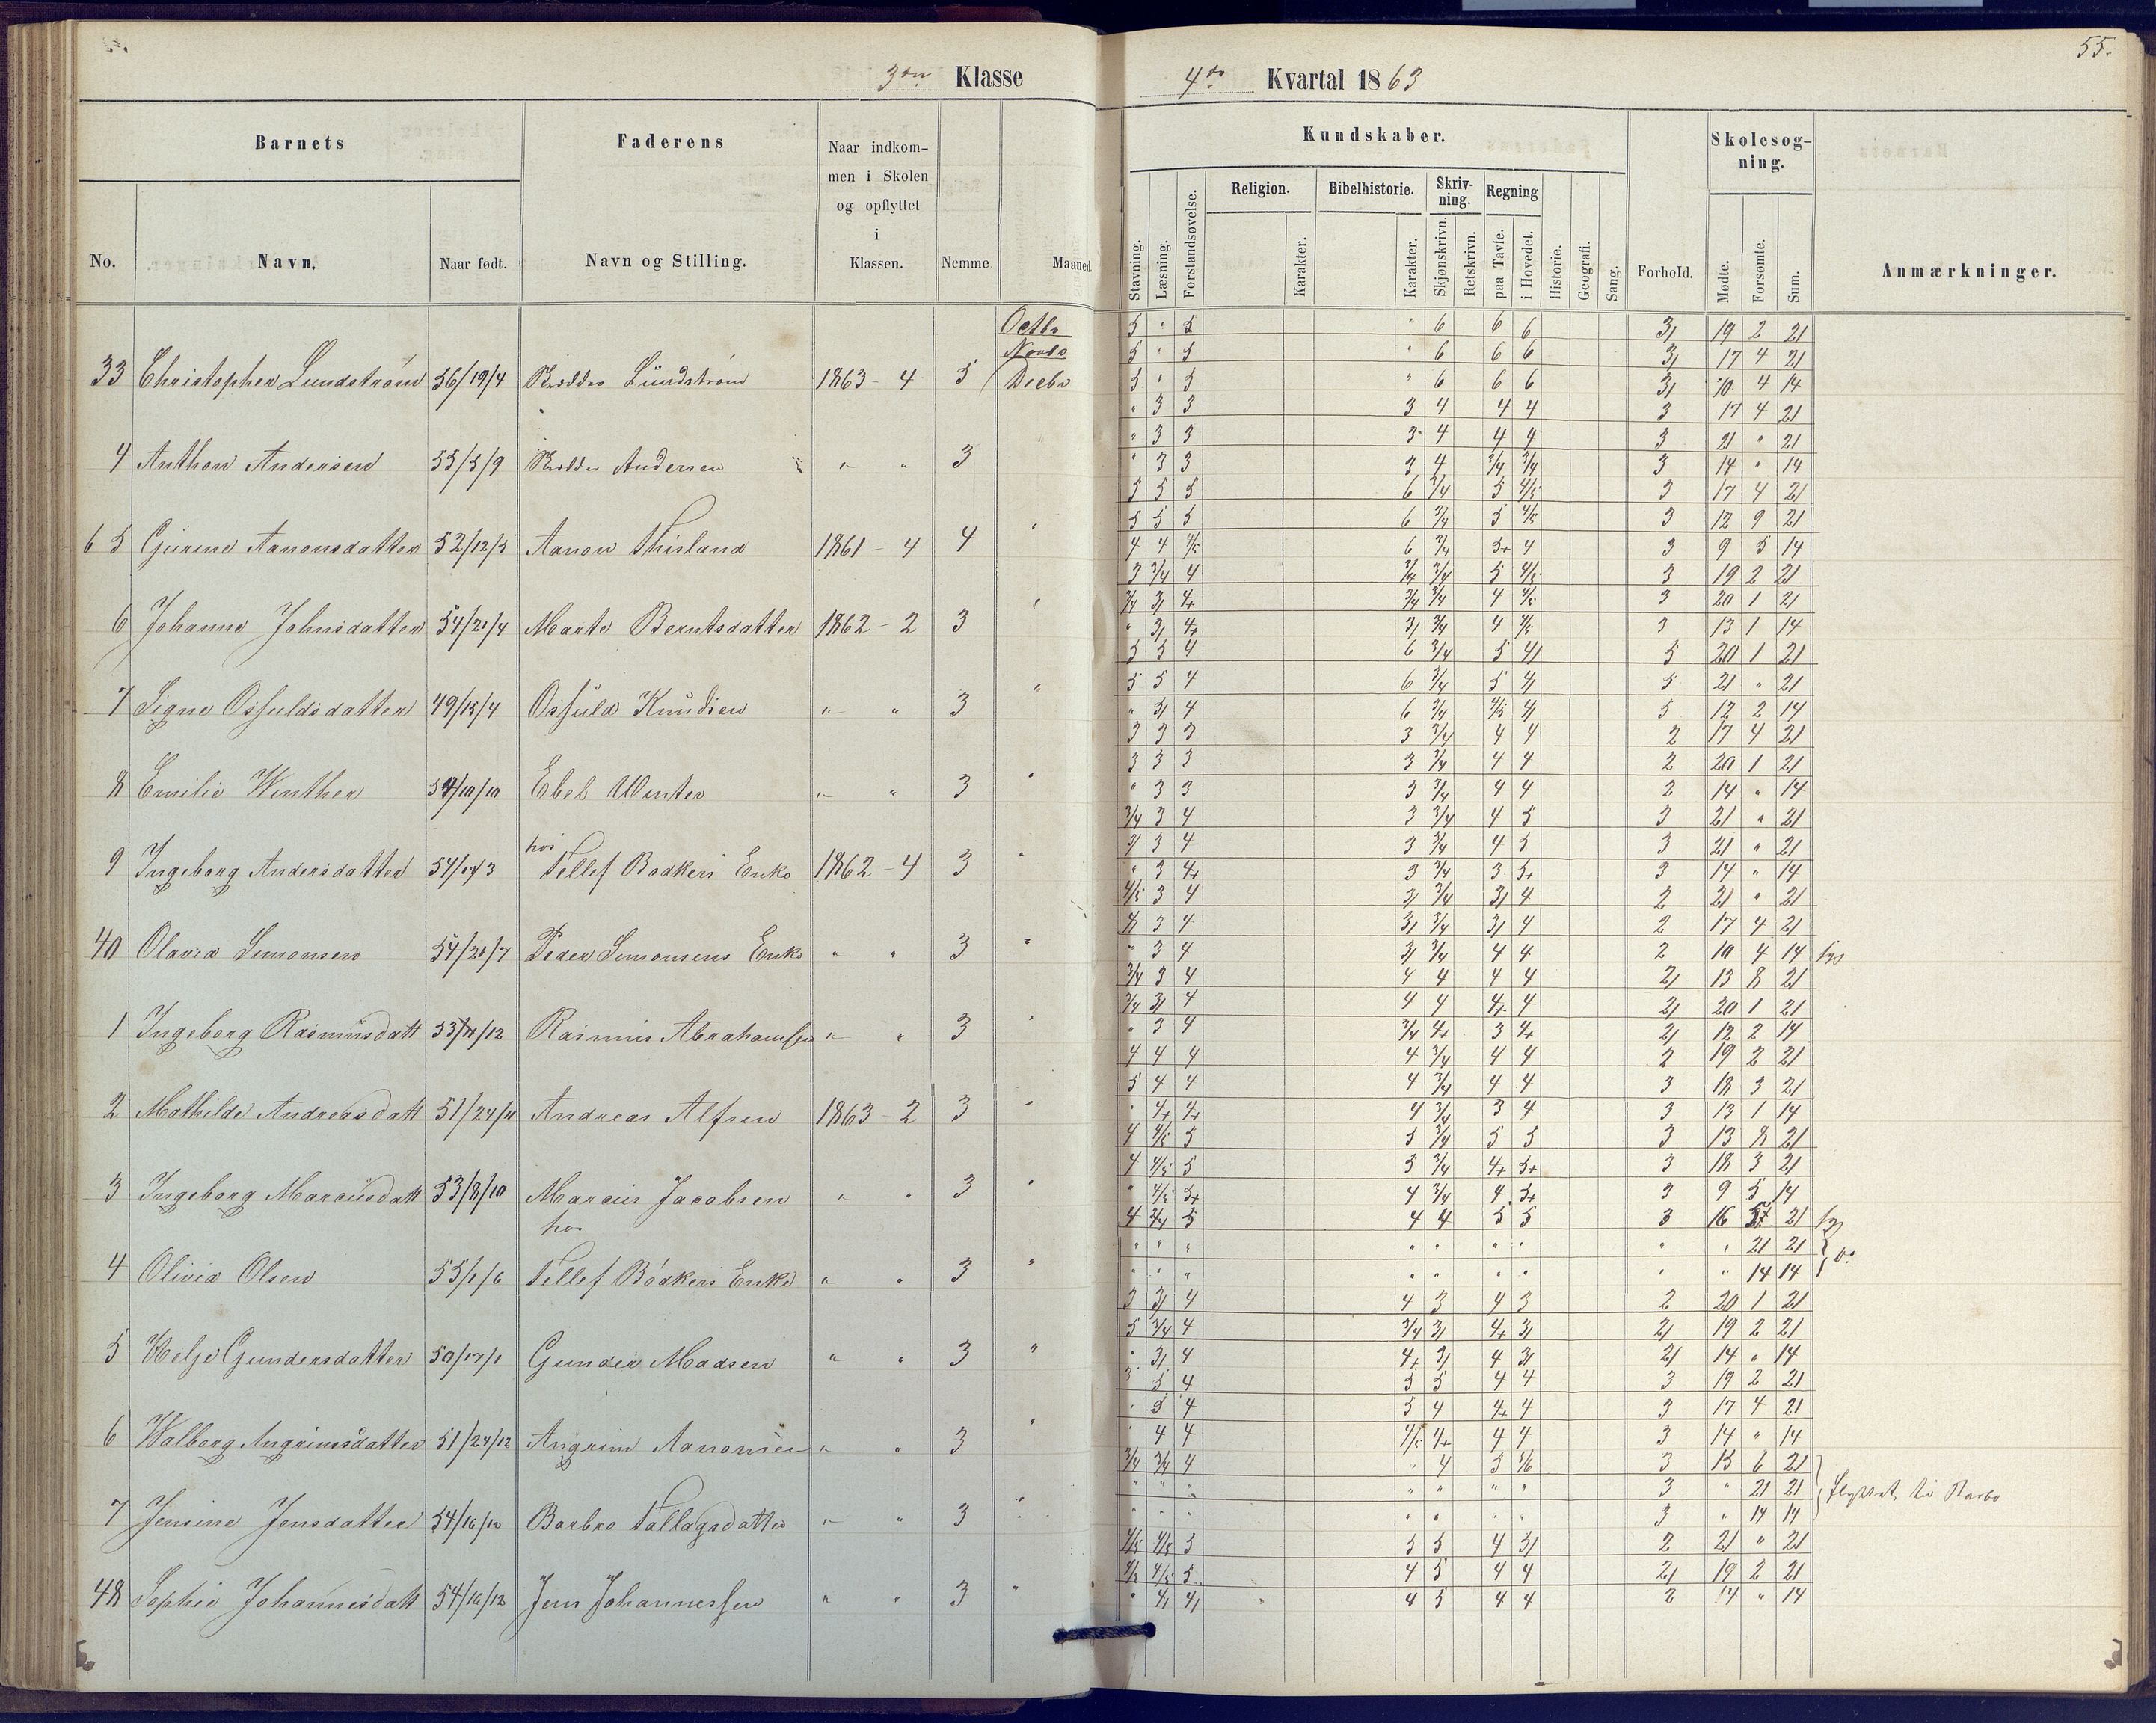 55.
3die Klasse
4de Kvartal 1863
Barnets
Faderens
Naar indkommen i Skolen og opflyttet i Klassen.
Kundskaber.
Skolesøgning.
No.
Navn.
Naar født.
Navn og Stilling.
Nemme
Maaned.
Stavning.
Læsning.
Forstandsøvelse.
Religion.
Karakter.
Bibelhistorie.
Karakter.
Skrivning.
Skjønskrivn.
Retskrivn.
Regning
paa Tavle.
i Hovedet.
Historie.
Geografi.
Sang.
Forhold.
Mødte.
Forsømte.
Sum.
Anmærkninger.
Octbr 5 " 5 " 6 6 6 3/ 19 2 21
Novbr 5 " 5 " 6 6 6 3/ 17 4 21
33 Christopher Lundstrøm 56/19/4 Lundstrøm 1863 - 4 5 Decbr 5 " 5 " 6 6 6 3/ 10 4 14
" 3 3 3 4 4 4 3 17 4 21
" 3 3 3 4 4 4 3 21 " 21
4 Anthon Andersen 55/5/9 Andersen " " 3 " 3 3 3 4 3/4 3/4 3 14 " 14
5 5 5 6 3/4 5 4/5 3 17 4 21
5 5 5 6 3/4 5 4/5 3 12 9 21
6 5 Gurine Aanonsdatter 52/12/5 Aanon Thisland 1861 - 4 4 " 4 4 4/5 6 3/4 5+ 4 3 9 5 14
3 3/4 4 3/4 3/4 5 4/5 3 19 2 21
3/4 3/ 4+ 3/4 3/4 4 4/5 3 20 1 21
6 Johanne Johnsdatter 54/21/4 Marte Berntsdatter 1862 - 2 3 " " 3/ 4+ 3/ 3/4 4 4/5 3 13 1 14
5 5 4 6 3/4 5 4/ 5 20 1 21
5 5 4 6 3/4 5 4/ 5 21 " 21
7 Signe Osfuldsdatter 49/15/4 Osfuld Knudsen " " 3 " " 3/ 4 6 3/4 4/5 4/ 5 12 2 14
3 3 3 3 3/4 4 4 2 17 4 21
3 3 3 3 3/4 4 4 2 20 1 21
8 Emilie Winther 54/10/10 Ebel Winter " " 3 " " 3 3 3 3/4 4 4 2 14 " 14
3/4 3 4 3 3/4 4 5 3 21 " 21
3/ 3 4 3 3/4 4 5 3 21 " 21
hos
9 Ingeborg Andersdatter Tellef Bødkers Enke 1862 - 4 3 " " 3 4+ 3 3/4 3 5+ 3 14 " 14
4/5 3 4 3/ 3/4 3/ 4 2 21 " 21
3 4 3/ 3/4 3/ 4 2 17 4 21
40 Olava Simonsen 54/21/7 Peder Simonsens Enke " " 3 " " 3 4 3/ 3/4 4 4 2 10 4 14
3/4 3 4 4 4 4 4 2/ 13 8 21
3/4 3/ 4 4 4 4+ 4 2/ 20 1 21
1 Ingeborg Rasmusdatt Rasmus Abrahamsen " " 3 " " 3 4 3/4 4+ 3 4+ 2/ 12 2 14
4 4 4 4 3/4 4 4 2 19 2 21
5 4 4 4 3/4 4 4 3 18 3 21
2 Mathilde Andreasdatt 51/24/11 Andreas Alfsen 1863 - 2 3 " " 4+ 4+ 4 3/4 3 4 3 13 1 14
4 4/5 5 5 3/4 5 5 3 13 8 21
4 4/5 5 5 3/4 4+ 5+ 3 18 3 21
3 Ingeborg Marcusdatt 53/8/10 Marcus Jacobsen " " 3 " " 4/5 5+ 4 3/4 4 5+ 3 9 5 14
hos 4 3/4 5 4 4 5 5 3 16 5 21
" " " " " " " " " 21 21
4 Olivia Olsen 55/1/6 Tellef Bødkers Enke " " 3 " " " " " " " " " " 14 14
3 3/ 4 4 3 4 3 2 20 1 21
5 3/4 4 3/4 3/ 4+ 3/ 2/ 19 2 21
5 Helje Gundersdatter Gunder Madsen " " 3 " " 3/ 4 4+ 3/ 4 3/ 2/ 14 " 14
3 5 4 5 5 4 4 3 19 2 21
" 5 4 5 4 4+ 4 3 17 4 21
6 Walborg Angrimsdatter 51/24/12 Angrim Aanonsen " " 3 " " 4 4 4/5 4+ 4 4 3 14 " 14
3/4 3/4 4 " 4 3 5/6 3 15 6 21
" " " " " " " 3 " 21 21 flyttet til Barbo
7 Jensine Jensdatter 54/16/10 Barbro Tallagsdatter " " 3 " " " " " " " " 3 " 14 14
4/5 4/5 5 5 5 4 3/ 2 21 " 21
4/5 4/5 5 4 5 4 4 2/ 19 2 21
48 Sophie Johannesdatt 54/16/12 Jens Johannessen " " 3 " " 4/ 4/ 4 5 4 4 2 14 " 14